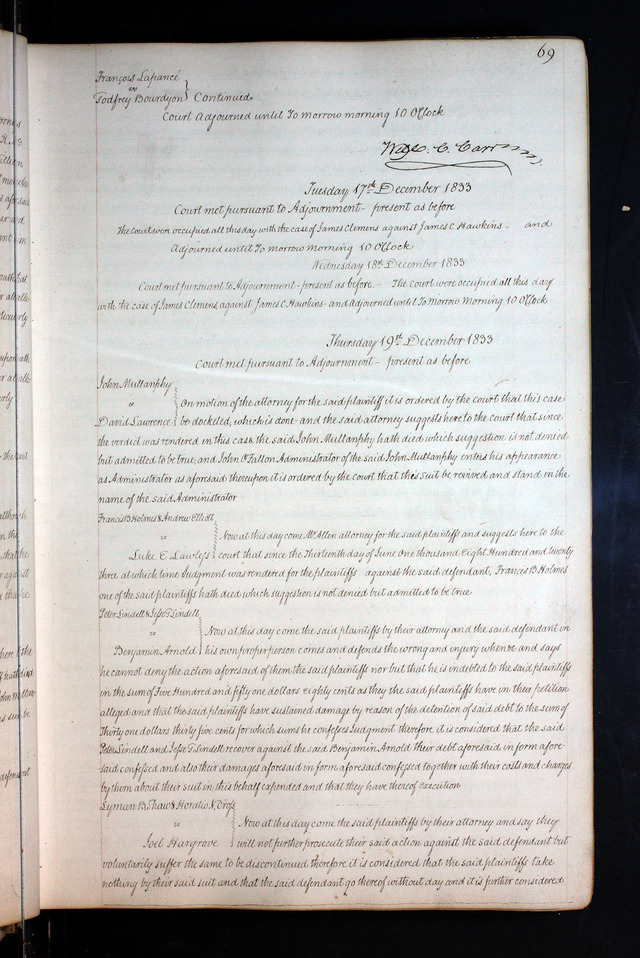 69
François Lapancé
vs
Todfrey Bourdyon } Continued
Court Adjourned until To morrow morning 10 O'Clock
Wm. C. Carr
Tuesday 17th December 1833
Court met pursuant to Adjournment - present as before
The Court were occupied all this day with the case of James Clemens against James C Hawkins - and
Adjourned until To morrow Morning 10 O'Clock
Wednesday 18th December 1833
Court met pursuant to Adjournment - present as before - The Court were occupied all this day
with the case of James Clemens against James C Hawkins - and adjourned until To Morrow Morning 10 O'Clock
Thursday 19th December 1833
Court met pursuant to Adjournment - present as before
John Mullanphy
vs
On motion of the attorney for the said plaintiff it is ordered by the court that this case
David Lawrence } be docketed, which is done - and the said attorney suggests here to the court that since
the verdict was rendered in this case the said John Mullanphy hath died which suggestion is not denied
but admitted to be true, and John O'Fallon Administrator of the said John Mullanphy enters his appearance
as Administrator as aforesaid thereupon it is ordered by the court that this suit be revived and stand in the
name of the said Administrator
Francis B Holmes & Andrew Elliott
vs
Now at this day come Mr. Allen attorney for the said plaintiffs and suggests here to the
Luke E Lawless } court that since the Thirteenth day of June One thousand Eight Hundred and twenty
three at which time Judgment was rendered for the plaintiffs against the said defendant, Francis B Holmes
one of the said plaintiffs hath died which suggestion is not denied but admitted to be true
Peter Lindell & Jesse T Lindell
vs
Now at this day come the said plaintiffs by their attorney and the said defendant in
Benjamin Arnold } his own proper person comes and defends the wrong and injury when &c and says
he cannot deny the action aforesaid of them the said plaintiffs nor but that he is indebted to the said plaintiffs
in the sum of Five Hundred and fifty one dollars eighty cents as they the said plaintiffs have in their petition
alleged and that the said plaintiffs have sustained damage by reason of the detention of said debt to the sum of
Thirty one dollars thirty five cents for which sums he confesses Judgment therefore it is considered that the said
Peter Lindell and Jesse T Lindell recover against the said Benjamin Arnold their debt aforesaid in form afore-
said confessed and also their damages aforesaid in form aforesaid confessed together with their costs and charges
by them about their suit in this behalf expended and that they have thereof execution
Lyman B Shaw & Horatio N Cross
vs
Now at this day come the said plaintiffs by their attorney and say they
Joel Hargrove } will not further prosecute their said action against the said defendant but
voluntarily suffer the same to be discontinued therefore it is considered that the said plaintiffs take
nothing by their said suit and that the said defendant go thereof without day and it is further considered